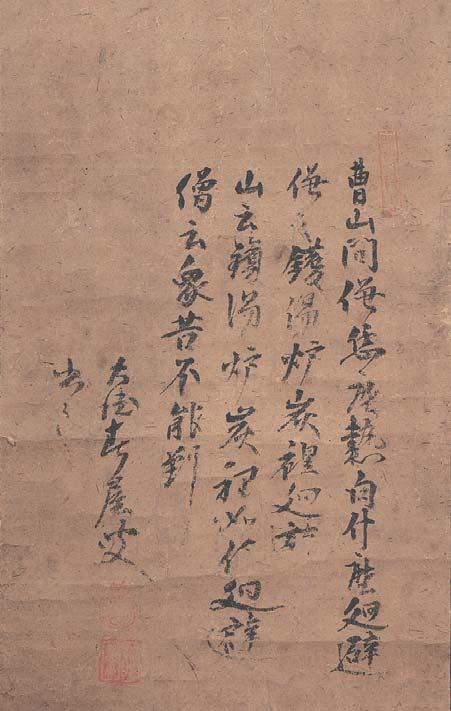 曹山問僧恁麼熱向什麼迴避
僧云鑊湯炉炭裡迴避
山云鑊湯炉炭裡如何迴避
僧云衆苦不能到
大徳春屋叟
書之